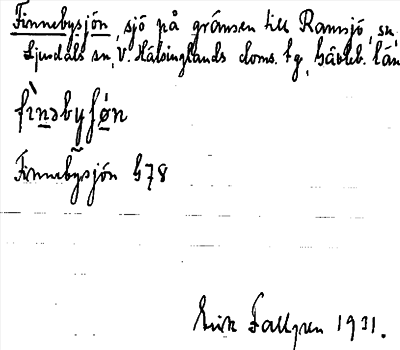 Finnebysjön, sjö på gränsen till Ramsjö sn,
Ljusdals sn, V. Hälsinglands doms. tg, Gävleb. län
fìnəbyʃø̀n
Finnebysjön G78
Erik Fallgren 1931.